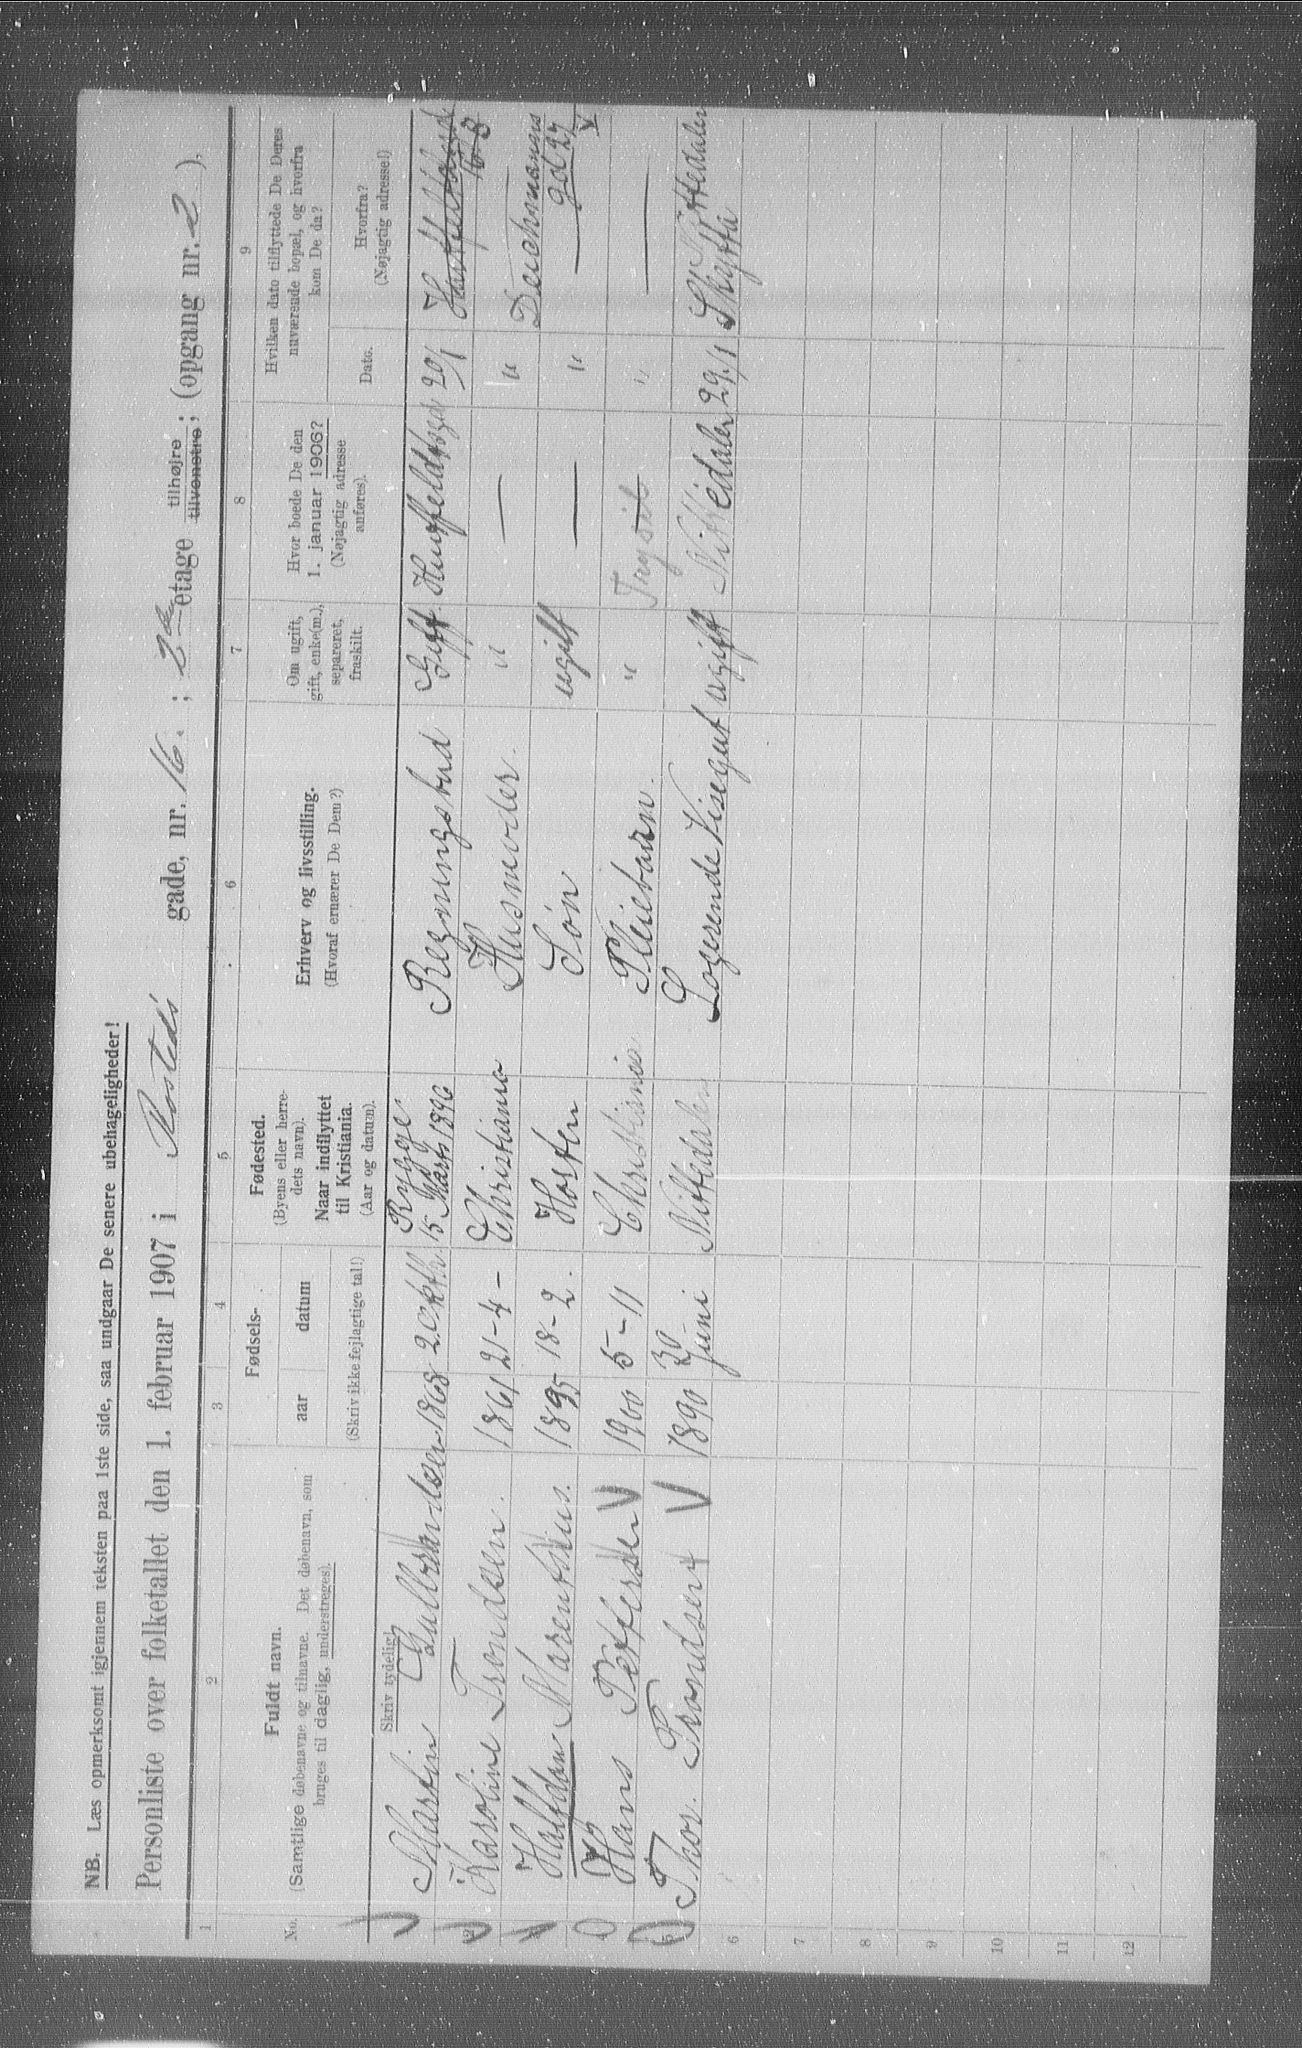 NB. Læs opmerksomt igjennem teksten paa 1ste side, saa undgaar De senere ubehageligheder!
Personliste over folketallet den 1. februar 1907 i Rosteds gade, nr. 16. ; 2den etage tilhøjre tilvenstre ; (opgang nr. 2 ).
1 2 3 4 5 6 7 8 9
No.
Fuldt navn.
(Samtlige døbenavne og tilnavne. Det døbenavn, som
bruges til daglig, understreges).
Skriv tydelig!
Fødsels-
aar datum
(Skriv ikke fejlagtige tal!)
Fødested.
(Byens eller herre-
dets navn).
Naar indflyttet
til Kristiania.
(Aar og datum).
Erhverv og livsstilling.
(Hvoraf ernærer De Dem?)
Om ugift,
gift, enke(m.),
separeret,
fraskilt.
Hvor boede De den
1. januar 1906?
(Nøjagtig adresse
anføres).
Hvilken dato tilflyttede De Deres
nuværende bopæl, og hvorfra
kom De da?
Dato.
Hvorfra?
(Nøjagtig adresse!)
Martin Gulbrandsen 1868 2 Oktb. Rygge 15 Marts 1890 Regningsbud Gift. Huitfeldtsgd 20/1 16 B
2 Karoline Trondsen. 1861 21-4- Christiania Husmoder. " — " Deichmanns
Halfdan Marenthius. 1895 18-2. Horten Søn ugift — " — gd 27
Hans Pettersen 1900 5-11 Christiania Pleiebarn. " " —
5 Thor. Trondsen + 1890 30 Juni Nittedalen Logerende Visegut ugift Nittedalen 29/1 Nittedalen
Skytta
6
7
8
9
10
11
12